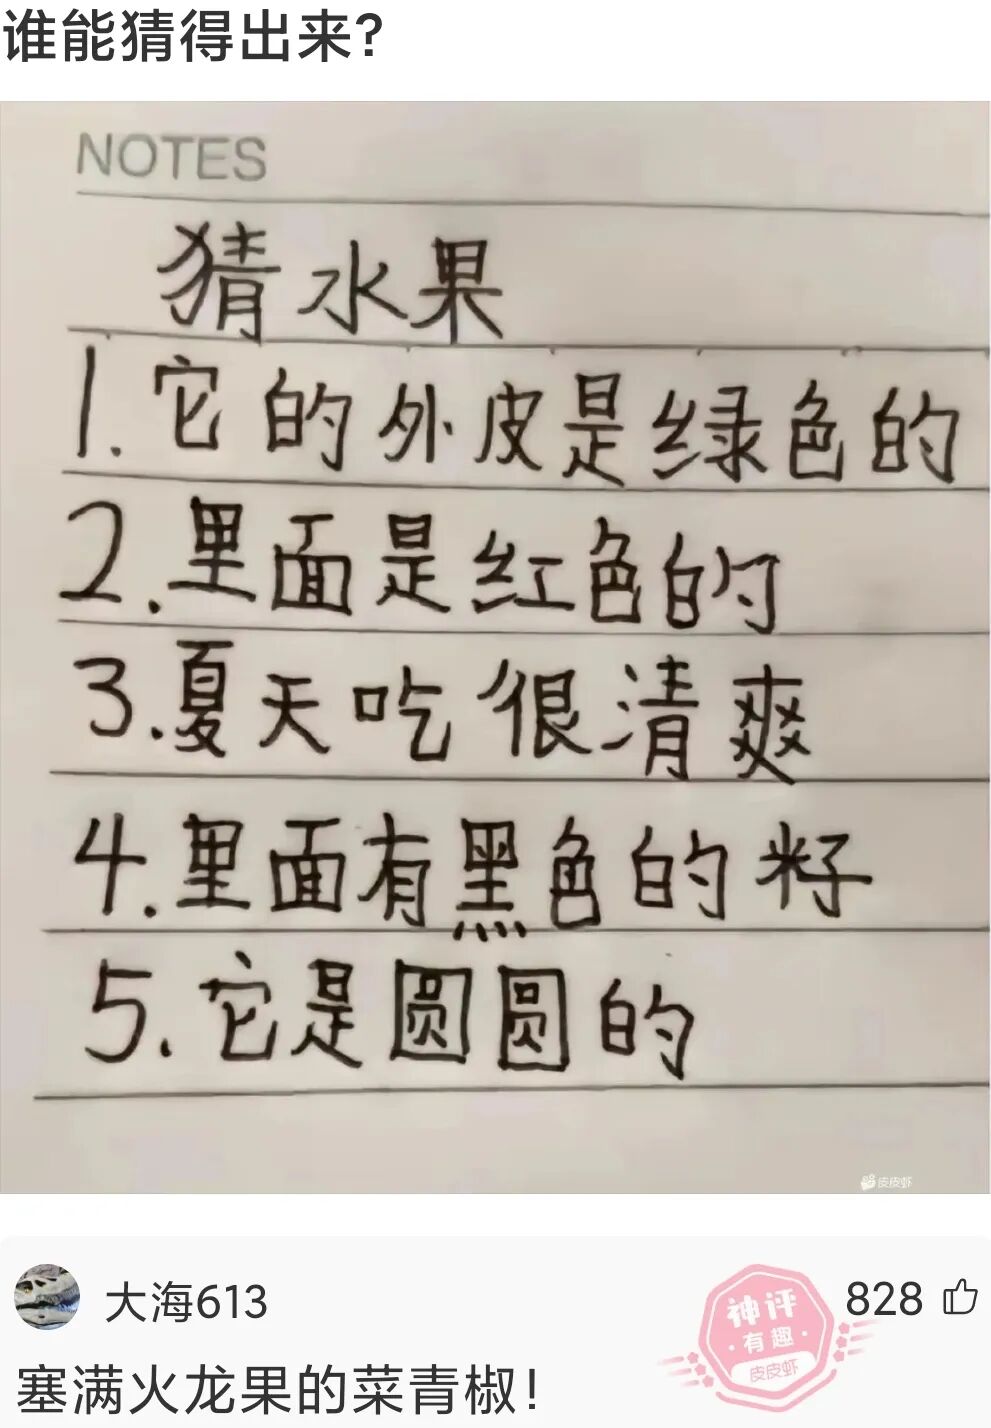 谁能猜得出来?
NOTES
猜水果
1.它的外皮是绿色的
2.里面是红色的
3.夏天吃很清爽
4.里面有黑色的籽
5.它是圆圆的
皮皮虾
大海613
神评
·有趣·
皮皮虾
828
塞满火龙果的菜青椒!